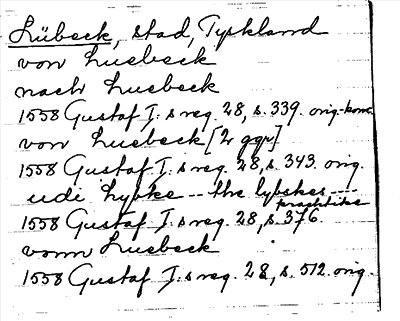 Lübeck, stad, Tyskland
von Luebeck
nach Luebeck
1558 Gustaf I:s reg. 28, s. 339. orig.-konc.
von Luebeck [2 ggr]
1558 Gustaf I:s reg. 28, s. 343. orig.
udi Lybke -- the lybskes ---
praghtike
1558 Gustaf I:s reg. 28, s. 376.
vonn Luebeck
1558 Gustaf I:s reg. 28, s. 512. orig.